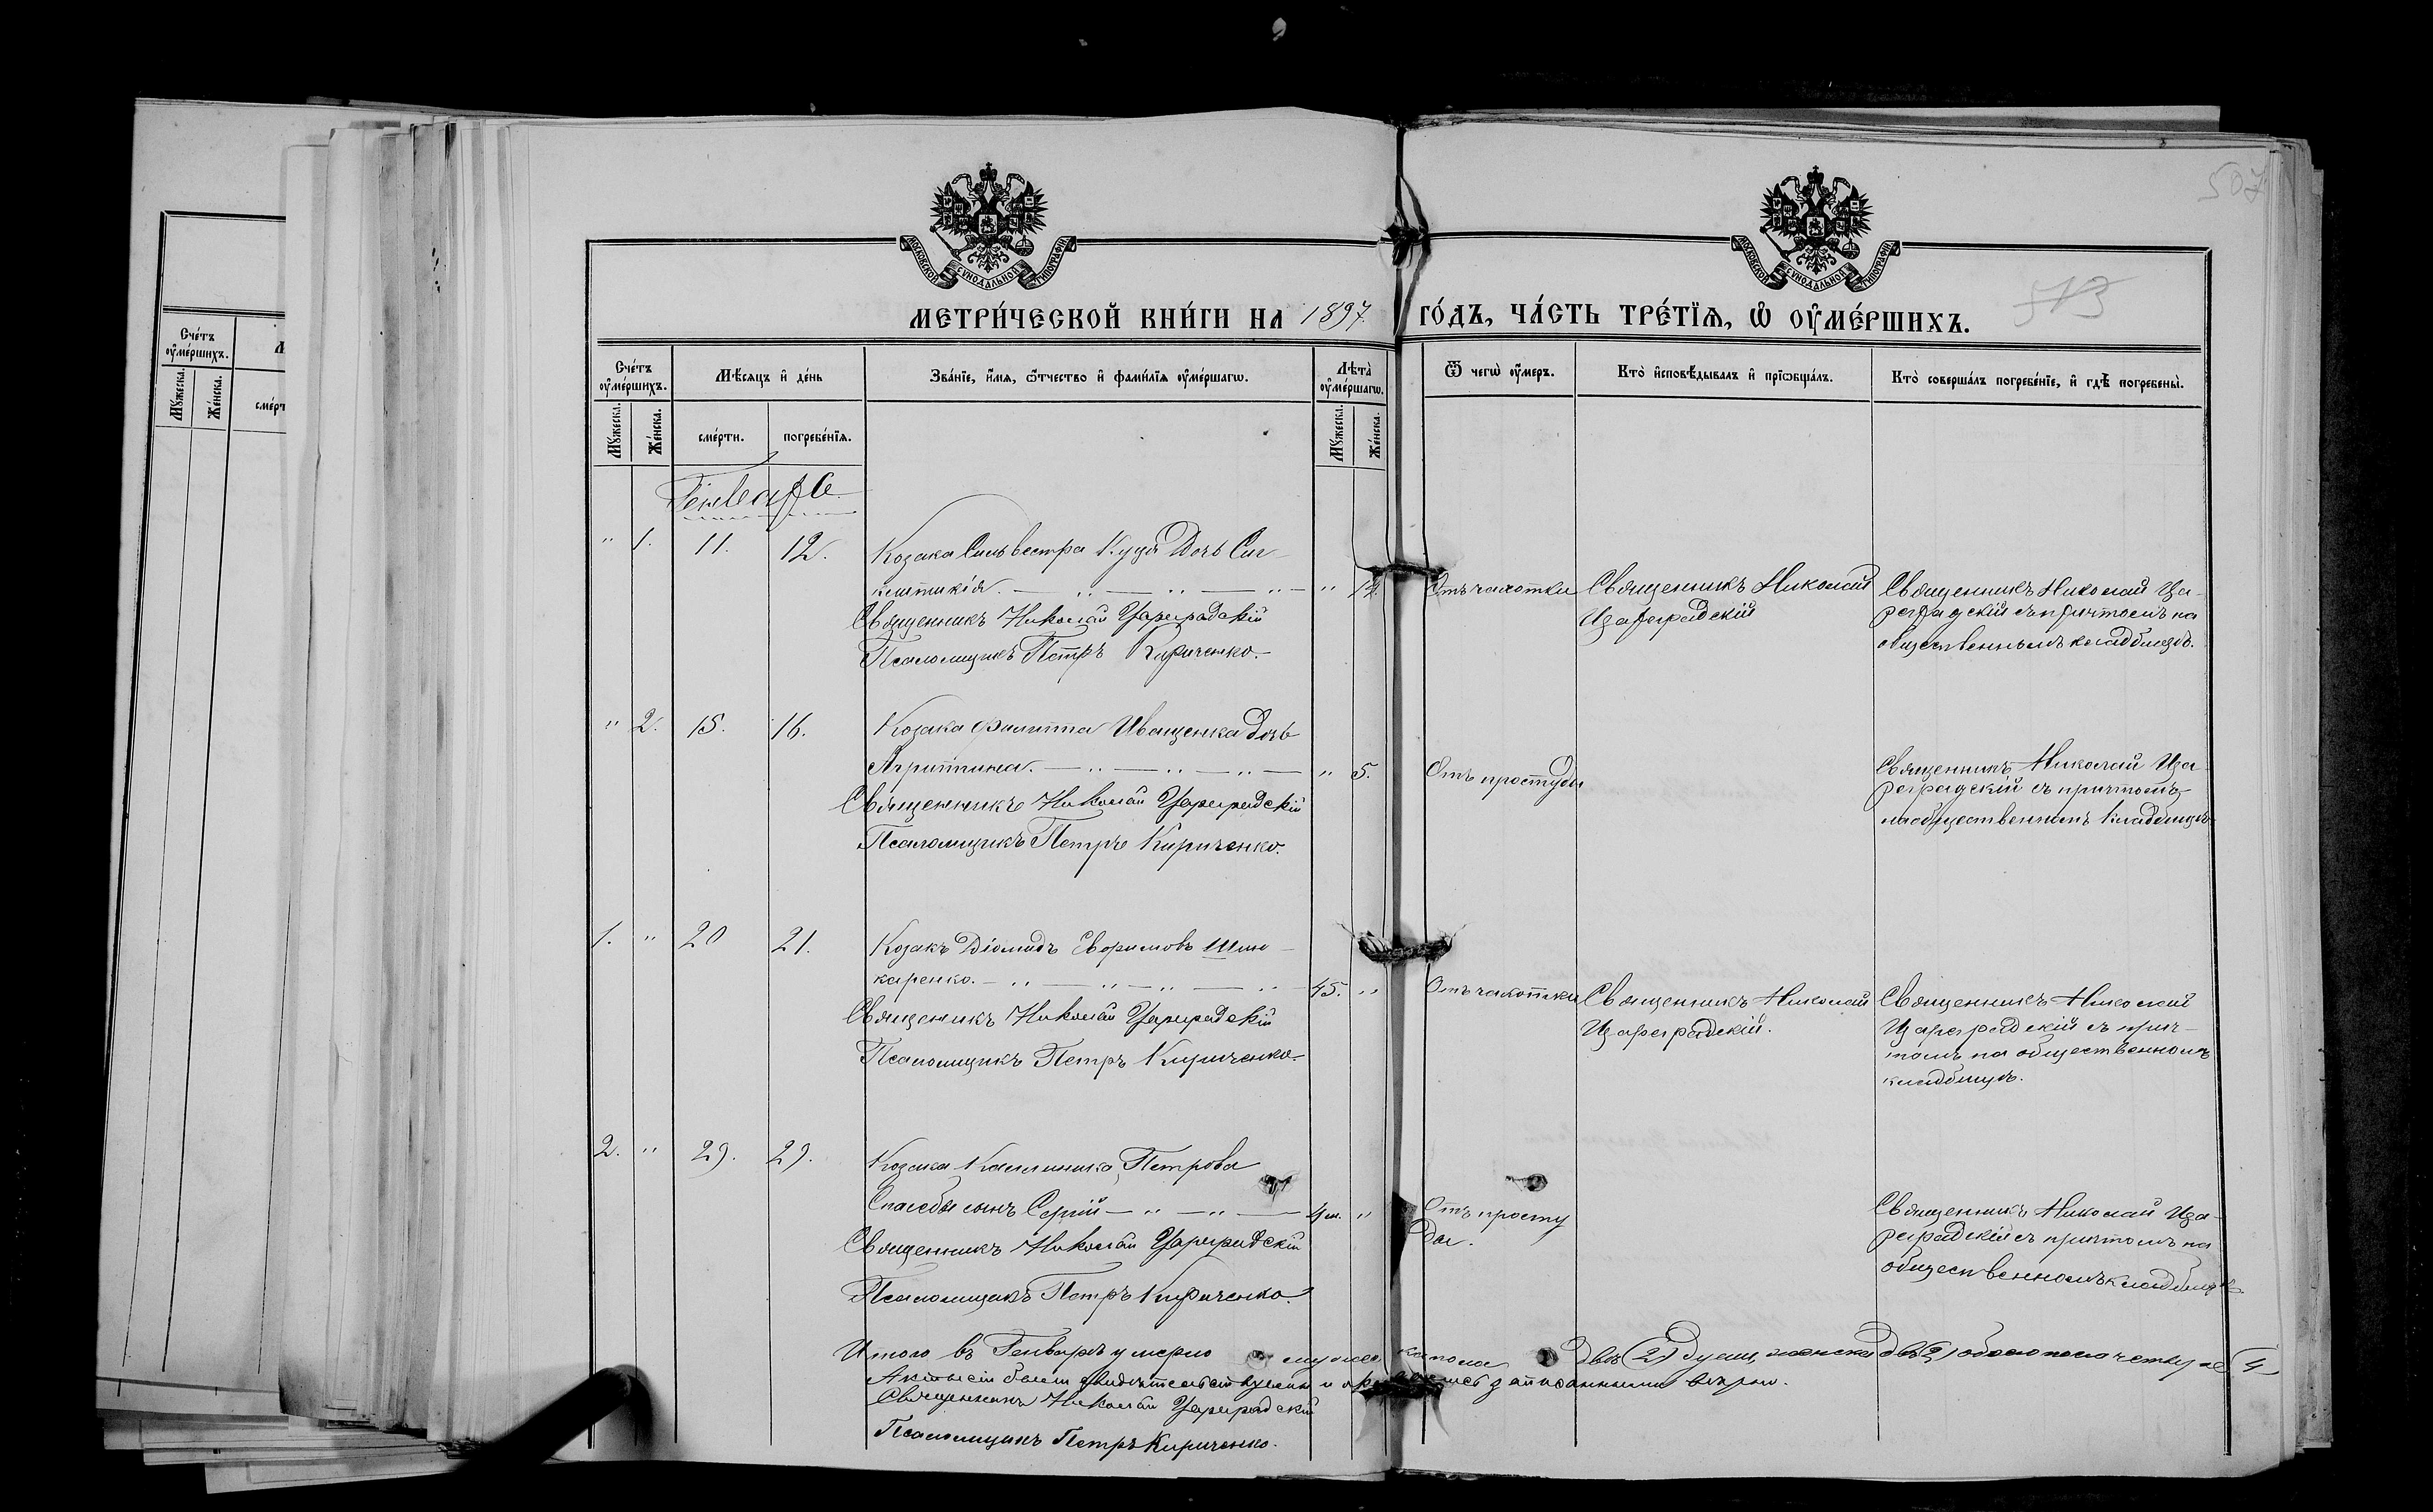 507
МОСКОВСКОЙ СѴНОДАЛЬНОЙ ТИПОГРАФІИ
МОСКОВСКОЙ СѴНОДАЛЬНОЙ ТИПОГРАФІИ
513
МЕТРИ́ЧЕСКОЙ КНИ́ГИ НА 1897 ГО́ДЪ, ЧА́СТЬ ТРЕ́ТЇѦ, Ѡ ОУ҆МЕ́РШИХЪ.
Сче́тъ оу҆ме́ршихъ.
Мѣ́сѧцъ и҆ де́нь
Зва́нїе, и҆́мѧ, ѻ҆́тчество и҆ фами́лїѧ оу҆ме́ршагѡ.
Лѣ́та оу҆ме́ршагѡ.
Ѿ чегѡ̀ оу҆́меръ.
Кто̀ и҆сповѣ́дывалъ и҆ прїѡбща́лъ.
Кто̀ соверша́лъ погребе́нїе, и҆ гдѣ̀ погребены̀.
Мꙋ́жеска.
Же́нска.
сме́рти.
погребе́нїѧ.
Мꙋ́жеска.
Же́нска.
Сче́тъ
оу҆ме́ршихъ.
Мꙋ́жеска.
Же́нска.
Генварь
" 1. 11. 12. Козака Сильвестра Дочь
"
Священникъ Николай Цареградскій
Псаломщикъ Петръ Кириченко.
Отъ чахотки
Священникъ Николай
Цареградскій
Священникъ Николай Ца-
реградскій съ причтомъ на
общественномъ кладбищѣ.
" 2. 15. 16. Козака Филиппа Иващенка дочь
Агриппина. " 5.
Священникъ Николай Цареградскій
Псаломщикъ Петръ Кириченко.
Отъ простуды
Священникъ Николай Ца-
реградскій съ причтомъ
на общественномъ кладбищѣ
1. " 20 21. Козакъ Діомидъ Евфимовъ Шин-
каренко. 45. "
Священникъ Николай Цареградскій
Псаломщикъ Петръ Кириченко.
Отъ чахотки
Священникъ Николай
Цареградскій.
Священникъ Николай
Цареградскій съ прич-
томъ на общественномъ
кладбищѣ.
2. " 29. 29. Козака Каллиника Петрова
сынъ Сергій 4 м. "
Священникъ Николай Цареградскій
Псаломщикъ Петръ Кириченко.
Отъ просту
ды.
Священникъ Николай Ца-
реградскій съ причтомъ на
общественномъ кладбищѣ.
Итого въ Генварѣ умерло мужеска пола двѣ (2) души, женска двѣ (2) обоего пола четыре (4)
Акты сіи были свидѣтельствуемы и записанными вѣрно.
Священникъ Николай Цареградскій
Псаломщикъ Петръ Кириченко.